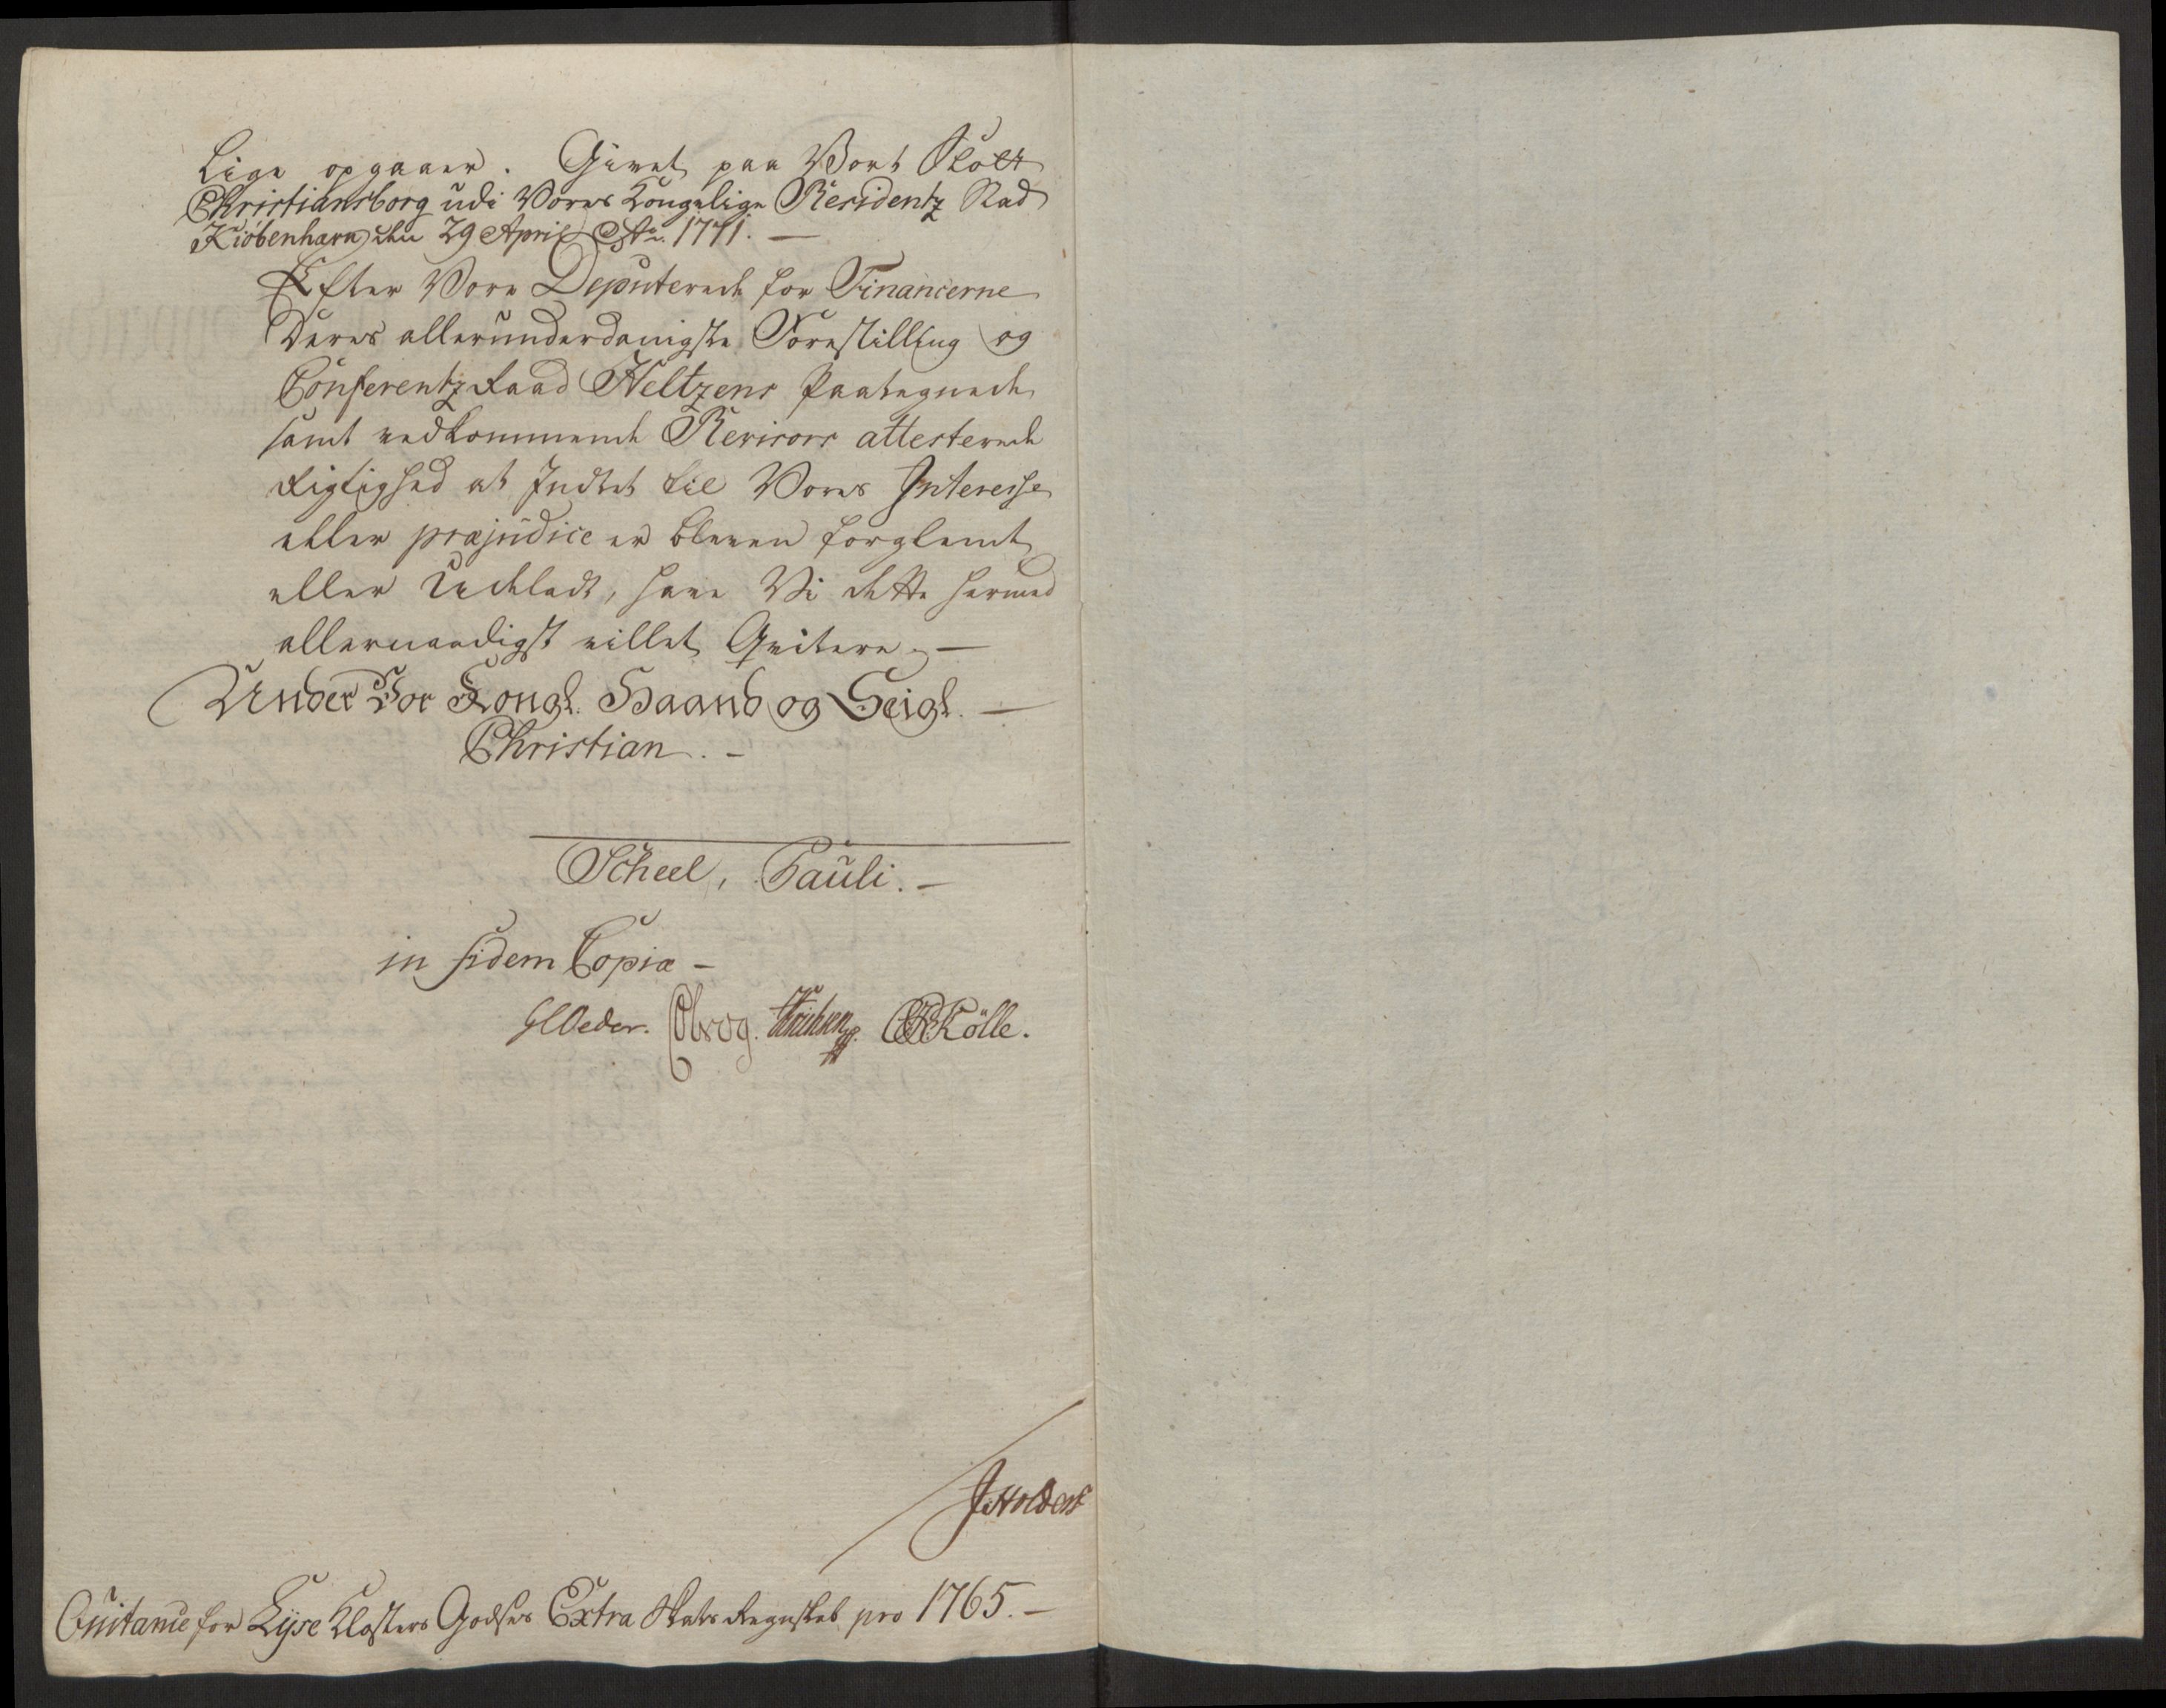 Lige opgaaer. Givet paa Vort Slott
Christiansborg udi Vores Kongelige Residentz Stad
Kiøbenhavn den 29 April Ao. 1771. —
Efter Vore Deputerede for Financerne
Deres allerunderdanigste Forestilling og
Conferentz Raad Heltzens Paategnede
samt vedkommende Revisors attesterede
Rigtighed at Indtet til Vores Interesse
eller præjudice er bleven forglemt
eller Udeladt, have Vi dette hermed
allernaadigst villet Qvitere. —
Under Vor Kongl. Haand og Seigl. —
Christian. —
Scheel, Pauli. —
in fidem Copiæ —
GCOeder. CBrog. CRKölle.
JHoldens
Quitance for Lyse Klosters Godses Extra Skatte Regnskab pro 1765. —